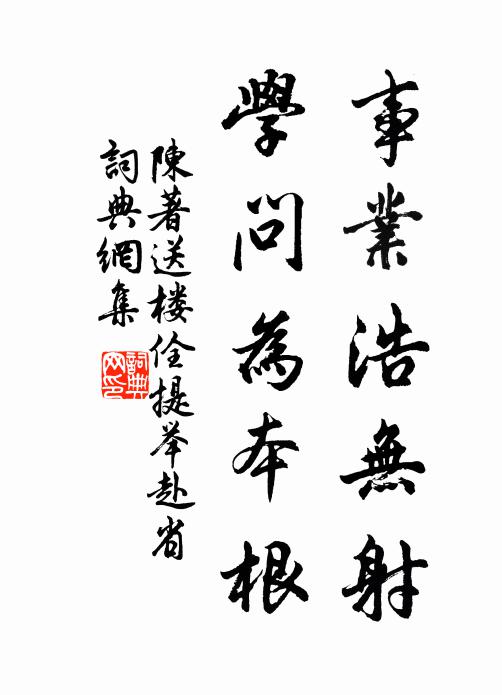 事業浩無射
學問為本根
陳著送楼佺提举赴省
詞典網集
詞典网印